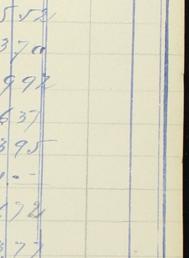 552
370
992
637
395
172
377